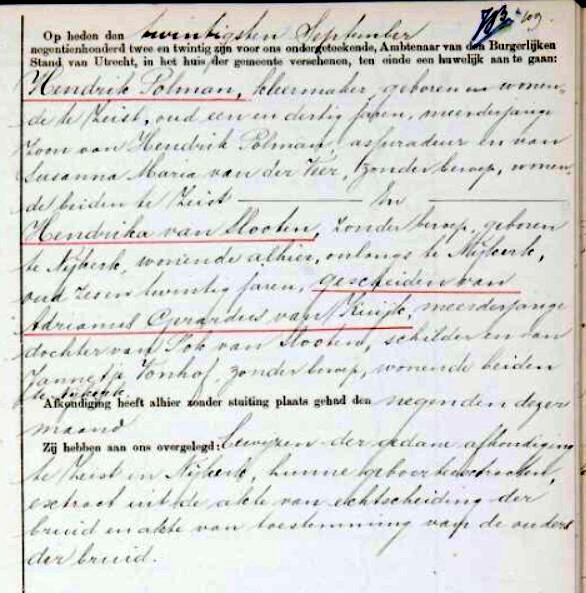 783 409.
Op heden den twintigsten September
negentienhonderd twee en twintig zijn voor ons ondergeteekende, Ambtenaar van den Burgerlijken
Stand van Utrecht, in het huis der gemeente verschenen, ten einde een huwelijk aan te gaan:
Hendrik Polman, kleermaker, geboren en wonen-
de te Zeist, oud een en dertig jaren, meerderjarige
zoon van Hendrik Polman, assuradeur en van
Susanna Maria van der Veer, zonder beroep, wonen-
de beiden te Zeist ——— En ———
Hendrika van Slooten, zonder beroep, geboren
te Nijkerk, wonende alhier, onlangs te Nijkerk,
oud zes en twintig jaren, gescheiden van
Adrianus Gerardus van Kuijk, meerderjarige
dochter van van Slooten, schilder en van
Jannetje Vonhof, zonder beroep, wonende beiden
te Nijkerk.
Afkondiging heeft alhier zonder stuiting plaats gehad den negenden dezer
maand
Zij hebben aan ons overgelegd: bewijzen der gedane afkondiging
te Zeist en Nijkerk, hunne geboorteextracten,
extract uit de akte van echtscheiding der
bruid en akte van toestemming van de ouders
der bruid.